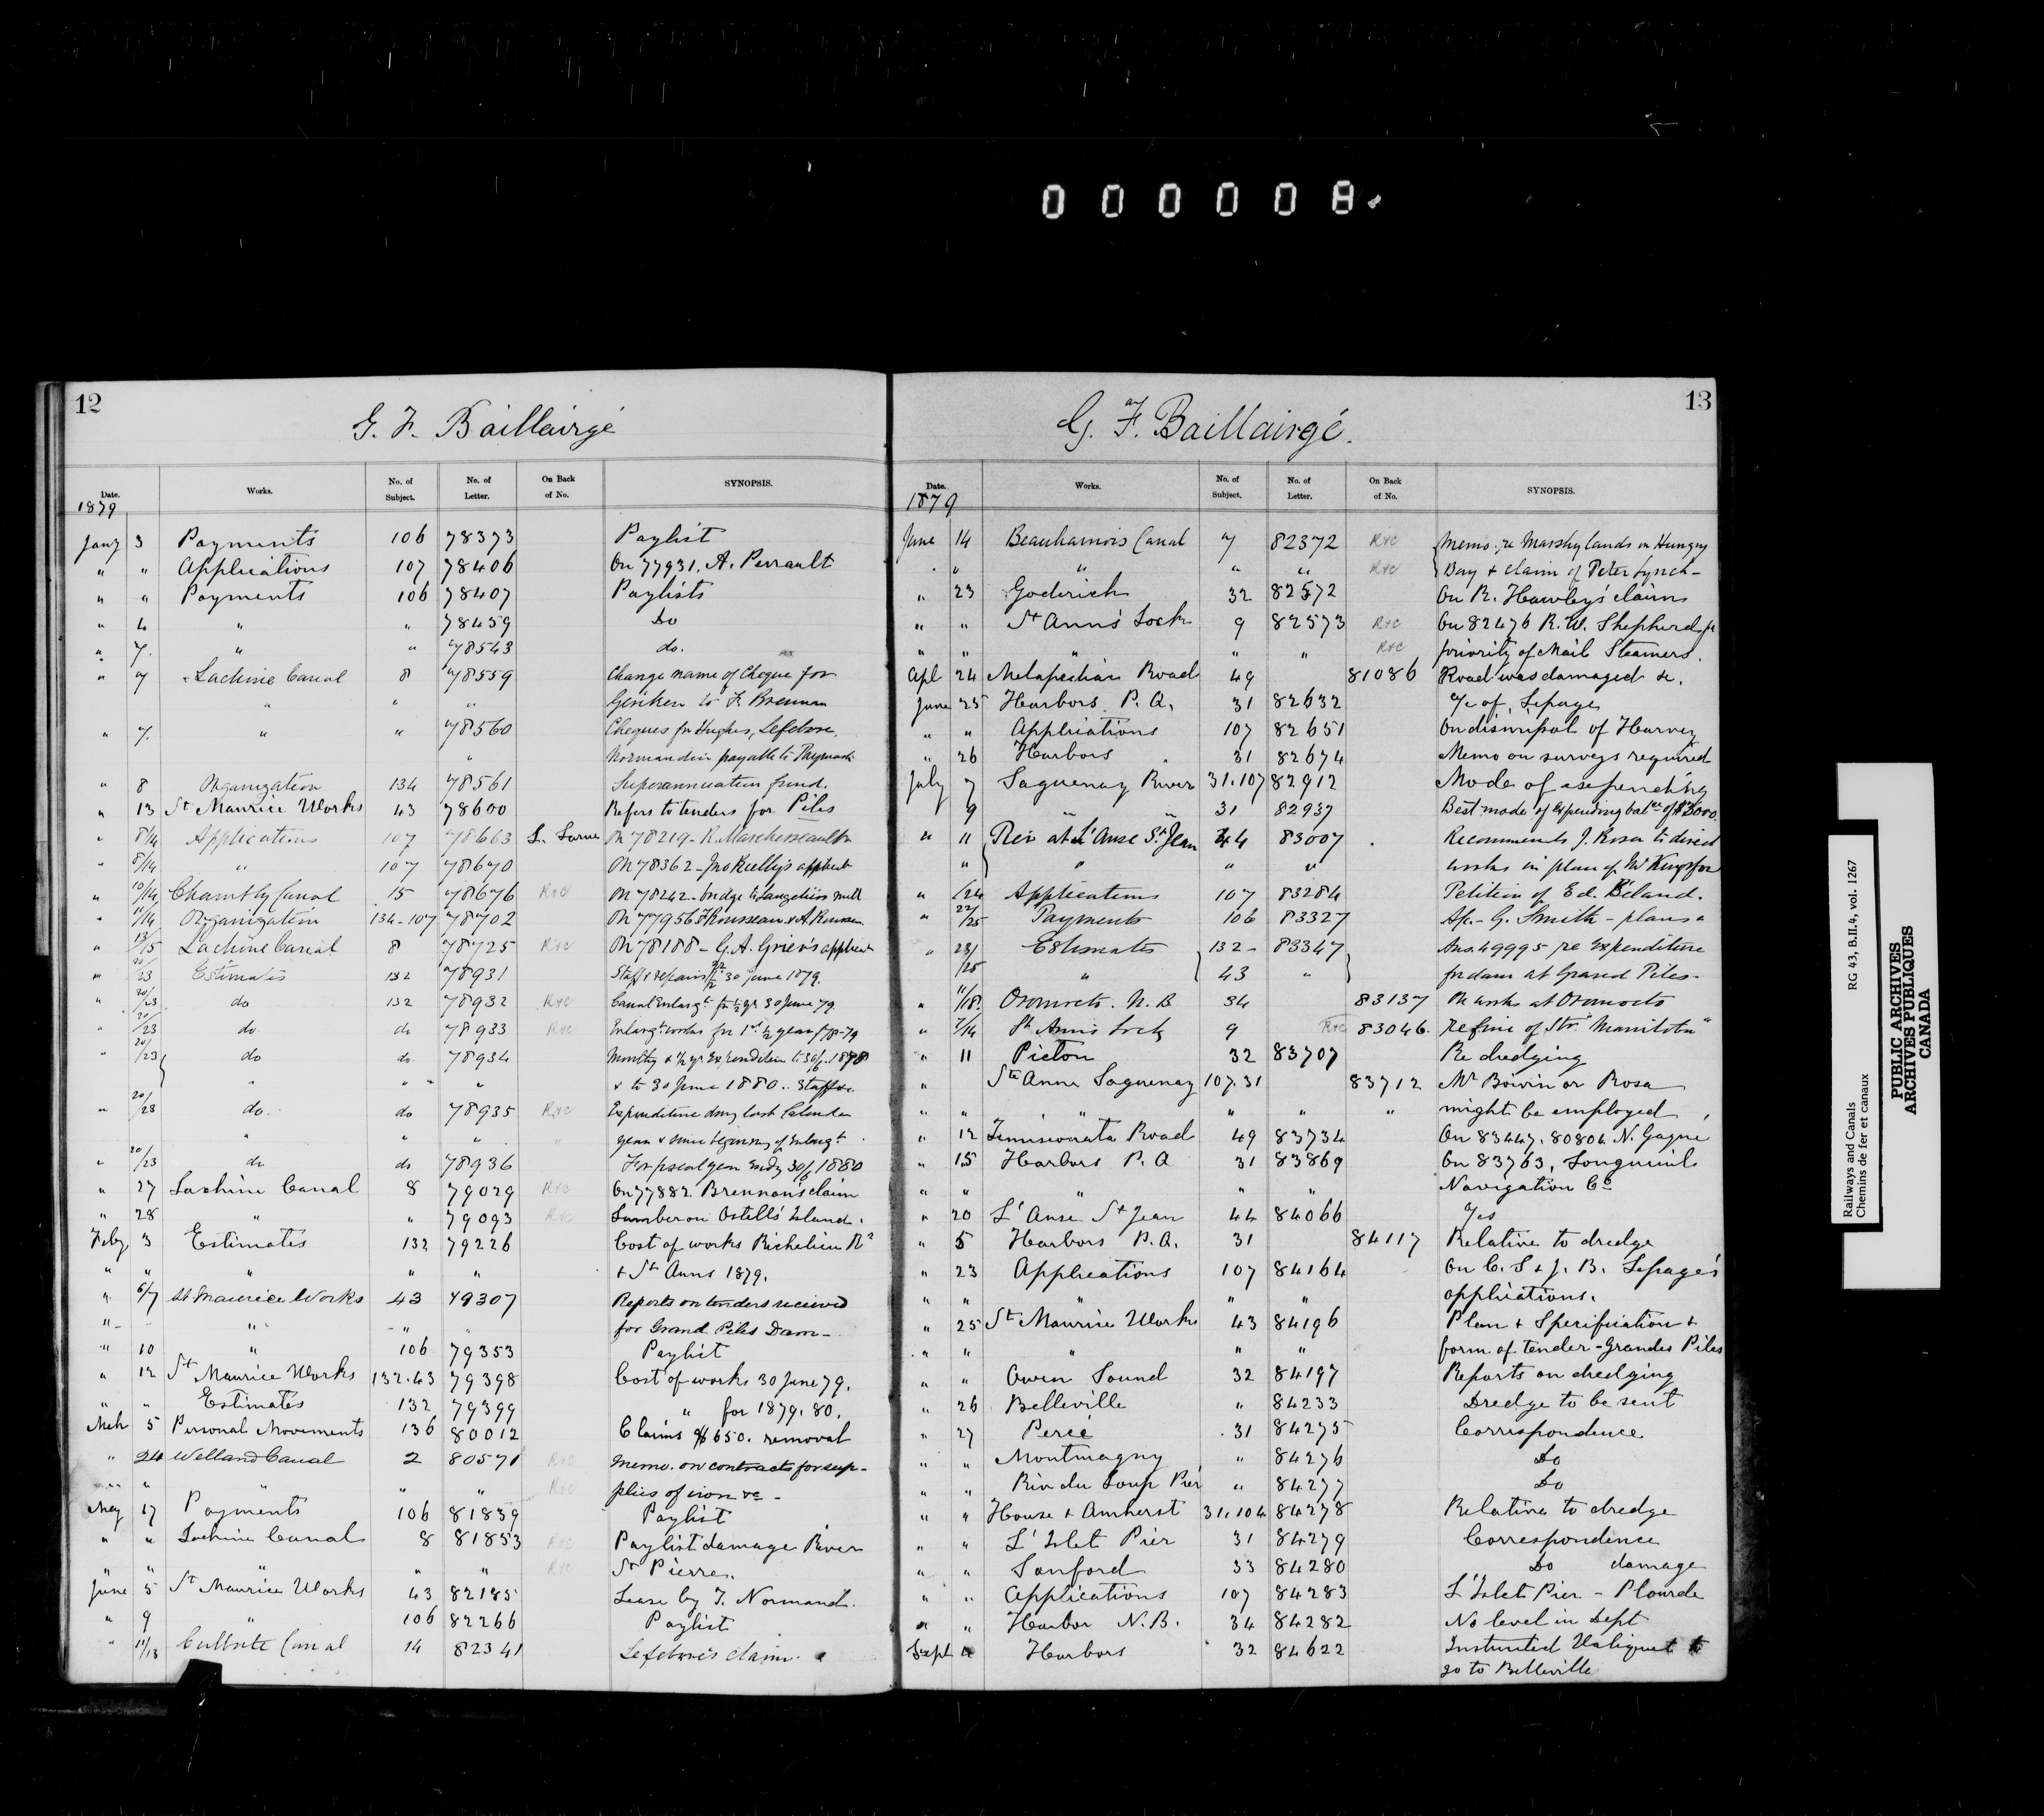 0 0 0 0 0 8
12
G. F. Baillairgé
Date. Works. No. of Subject. No. of Letter. On Back of No. SYNOPSIS.
1879
Jany 3 Payments 106 78373 Paylist
" " Applications 107 78406 On 77931. A. Perrault
" " Payments 106 78407 Paylists
" 4 " " 78459 Do
" 7. " " 78543 do.
" 7 Lachine Canal 8 78559 Change name of Cheque for
" " " to F. Brennan
" 7. " " 78560 Cheques for Hughes, Lefebvre,
" Normandin payable to
" 8 Organization 134 78561 Superannuation fund.
" 13 St Maurice Works 43 78600 Refers to tenders for Piles
" 8/14 Applications 107 78663 On 78219 - R.
" 8/14 " 107 78670 On 78362 - Jno Reilly's applicat
" 10/14 Chambly Canal 15 78676 R+C On 78242 - bridge to mill
" 11/14 Organization 134-107 78702 On 77956 Rousseau & A.
" 13/15 Lachine Canal 8 78725 R+C On 78188 - G. A. Grier's applicat
" 20/23 Estimates 132 78931 Staff & repairs 30 June 1879.
" 20/23 do 132 78932 R+C Canal Enlargt for ½ yr 30 June 79
" 20/23 do do 78933 R+C Enlargt works for 1st ½ year 78-79
" 20/23 do do. 78934 Monthly & ½ yr Expenditure to 30/6. 1878
" " " " & to 30 June 1880.. Staff &c.
" 20/23 do. do 78935 R+C Expenditure dury last Calendar
" " " year & since beginning of Enlargt
" 20/23 do do 78936 For fiscal year Endg 30/6 1880
" 27 Lachine Canal 8 79029 R+C On 77882 Brennan's claim
" 28 " " 79093 R+C Lumber on Ostell's Island.
Feby 3 Estimates 132 79226 Cost of works Richelieu Rr
" " " " " + St Anns 1879.
" 6/7 St Maurice Works 43 79307 Reports on tenders recieved
" " " " for Grand Piles Dam -
" 10 " 106 79353 Paylist
" 12 St Maurice Works 132.43 79398 Cost of works 30 June 79.
" " Estimates 132 79399 " for 1879.80.
Mch 5 Personal Movements 136 80012 Claims $650. removal
" 24 Welland Canal 2 80571 R+C Memo. on contracts for sup-
" " " " " R+C plies of iron &c -
May 17 Payments 106 81839 Paylist
" " Lachine Canal 8 81853 R+C Paylist damage River
" " " " " R+C St Pierre.
June 5 St Maurice Works 43 82185 Lease by T. Normand.
" 9 " 106 82266 Paylist
" 11/13 Culbute Canal 14 82341 Lefebvre's claim.
13
G. F. Baillairgé.
Date. Works. No. of Subject. No. of Letter. On Back of No. SYNOPSIS.
1879
June 14 Beauharnois Canal 7 82372 R+C Memo: re Marshy lands in Hungry
" " " " R+C Bay & claim of Peter Lynch -
" 23 Goderich 32 82572 On R. Hawley's claim
" " St Ann's Lock 9 82573 R+C On 82476 R. W. Shepherd, for
" " " " " R+C priority of Mail Steamers.
Apl 24 Metapediac Road 49 81086 Road was damaged &c.
June 25 Harbors P. Q. 31 82632 a/c of Lepage
" " Applications 107 82651 On dismissal of Harvey
" 26 Harbors 31 82674 Memo on surveys required
July 7 Saguenay River 31.107 82912 Mode of expending
9 " " 31 82937 Best mode of expending balce of $3000.
" 11 Pier at L'Anse St. Jean 44 83007 Recommends J. Rosa to direct
" " " " works in place of Mr Kingsford
" /24 Applications 107 83284 Petition of Ed. Béland.
" 22/25 Payments 106 83327 G. Smith - plans
" 23/25 Estimates 132 - 83347 Ans. 49995 re Expenditure
" 43 " for dam at Grand Piles -
" 11/18. Oromocto. N. B 34 83137 Works at Oromocto
" 7/14 St Ann's Lock 9 R+C 83046. re fine of Str "Manitoba"
" 11 Picton 32 83707 Re dredging
" Ste Anne Saguenay 107.31 83712 Mr Boivin or Rosa
" " " " " " might be employed
" 12 Temiscouata Road 49 83734 On 83447. 80804 N. Gagné
" 15 Harbors P. Q 31 83869 On 83763, Longueuil
" " " " " Navigation Co
" 20 L'Anse St Jean 44 84066 Yes
" 5 Harbors P.Q. 31 84117 Relative to dredge
" 23 Applications 107 84164 On C. S & J. B. Lepage's
" " " " " applications.
" 25 St Maurice Works 43 84196 Plan + Specification +
" " " " " form of tender - Grandes Piles
" " Owen Sound 32 84197 Reports on dredging
" 26 Belleville " 84233 Dredge to be sent
" 27 Percé 31 84275 Correspondence
" " Montmagny " 84276 Do
" " Riv du Loup Pier " 84277 Do
" " House + Amherst 31.104 84278 Relative to dredge
" " L'Islet Pier 31 84279 Correspondence
" " Sanford 33 84280 Do damage
" " Applications 107 84283 L'Islet Pier - Plourde
" " Harbor N.B. 34 84282 No level in Dept
Sept Harbors 32 84622 Instructed Valiquet to
go to Belleville
Railways and Canals RG 43, B.II.4, vol. 1267
Chemins de fer et canaux
PUBLIC ARCHIVES
ARCHIVES PUBLIQUES
CANADA